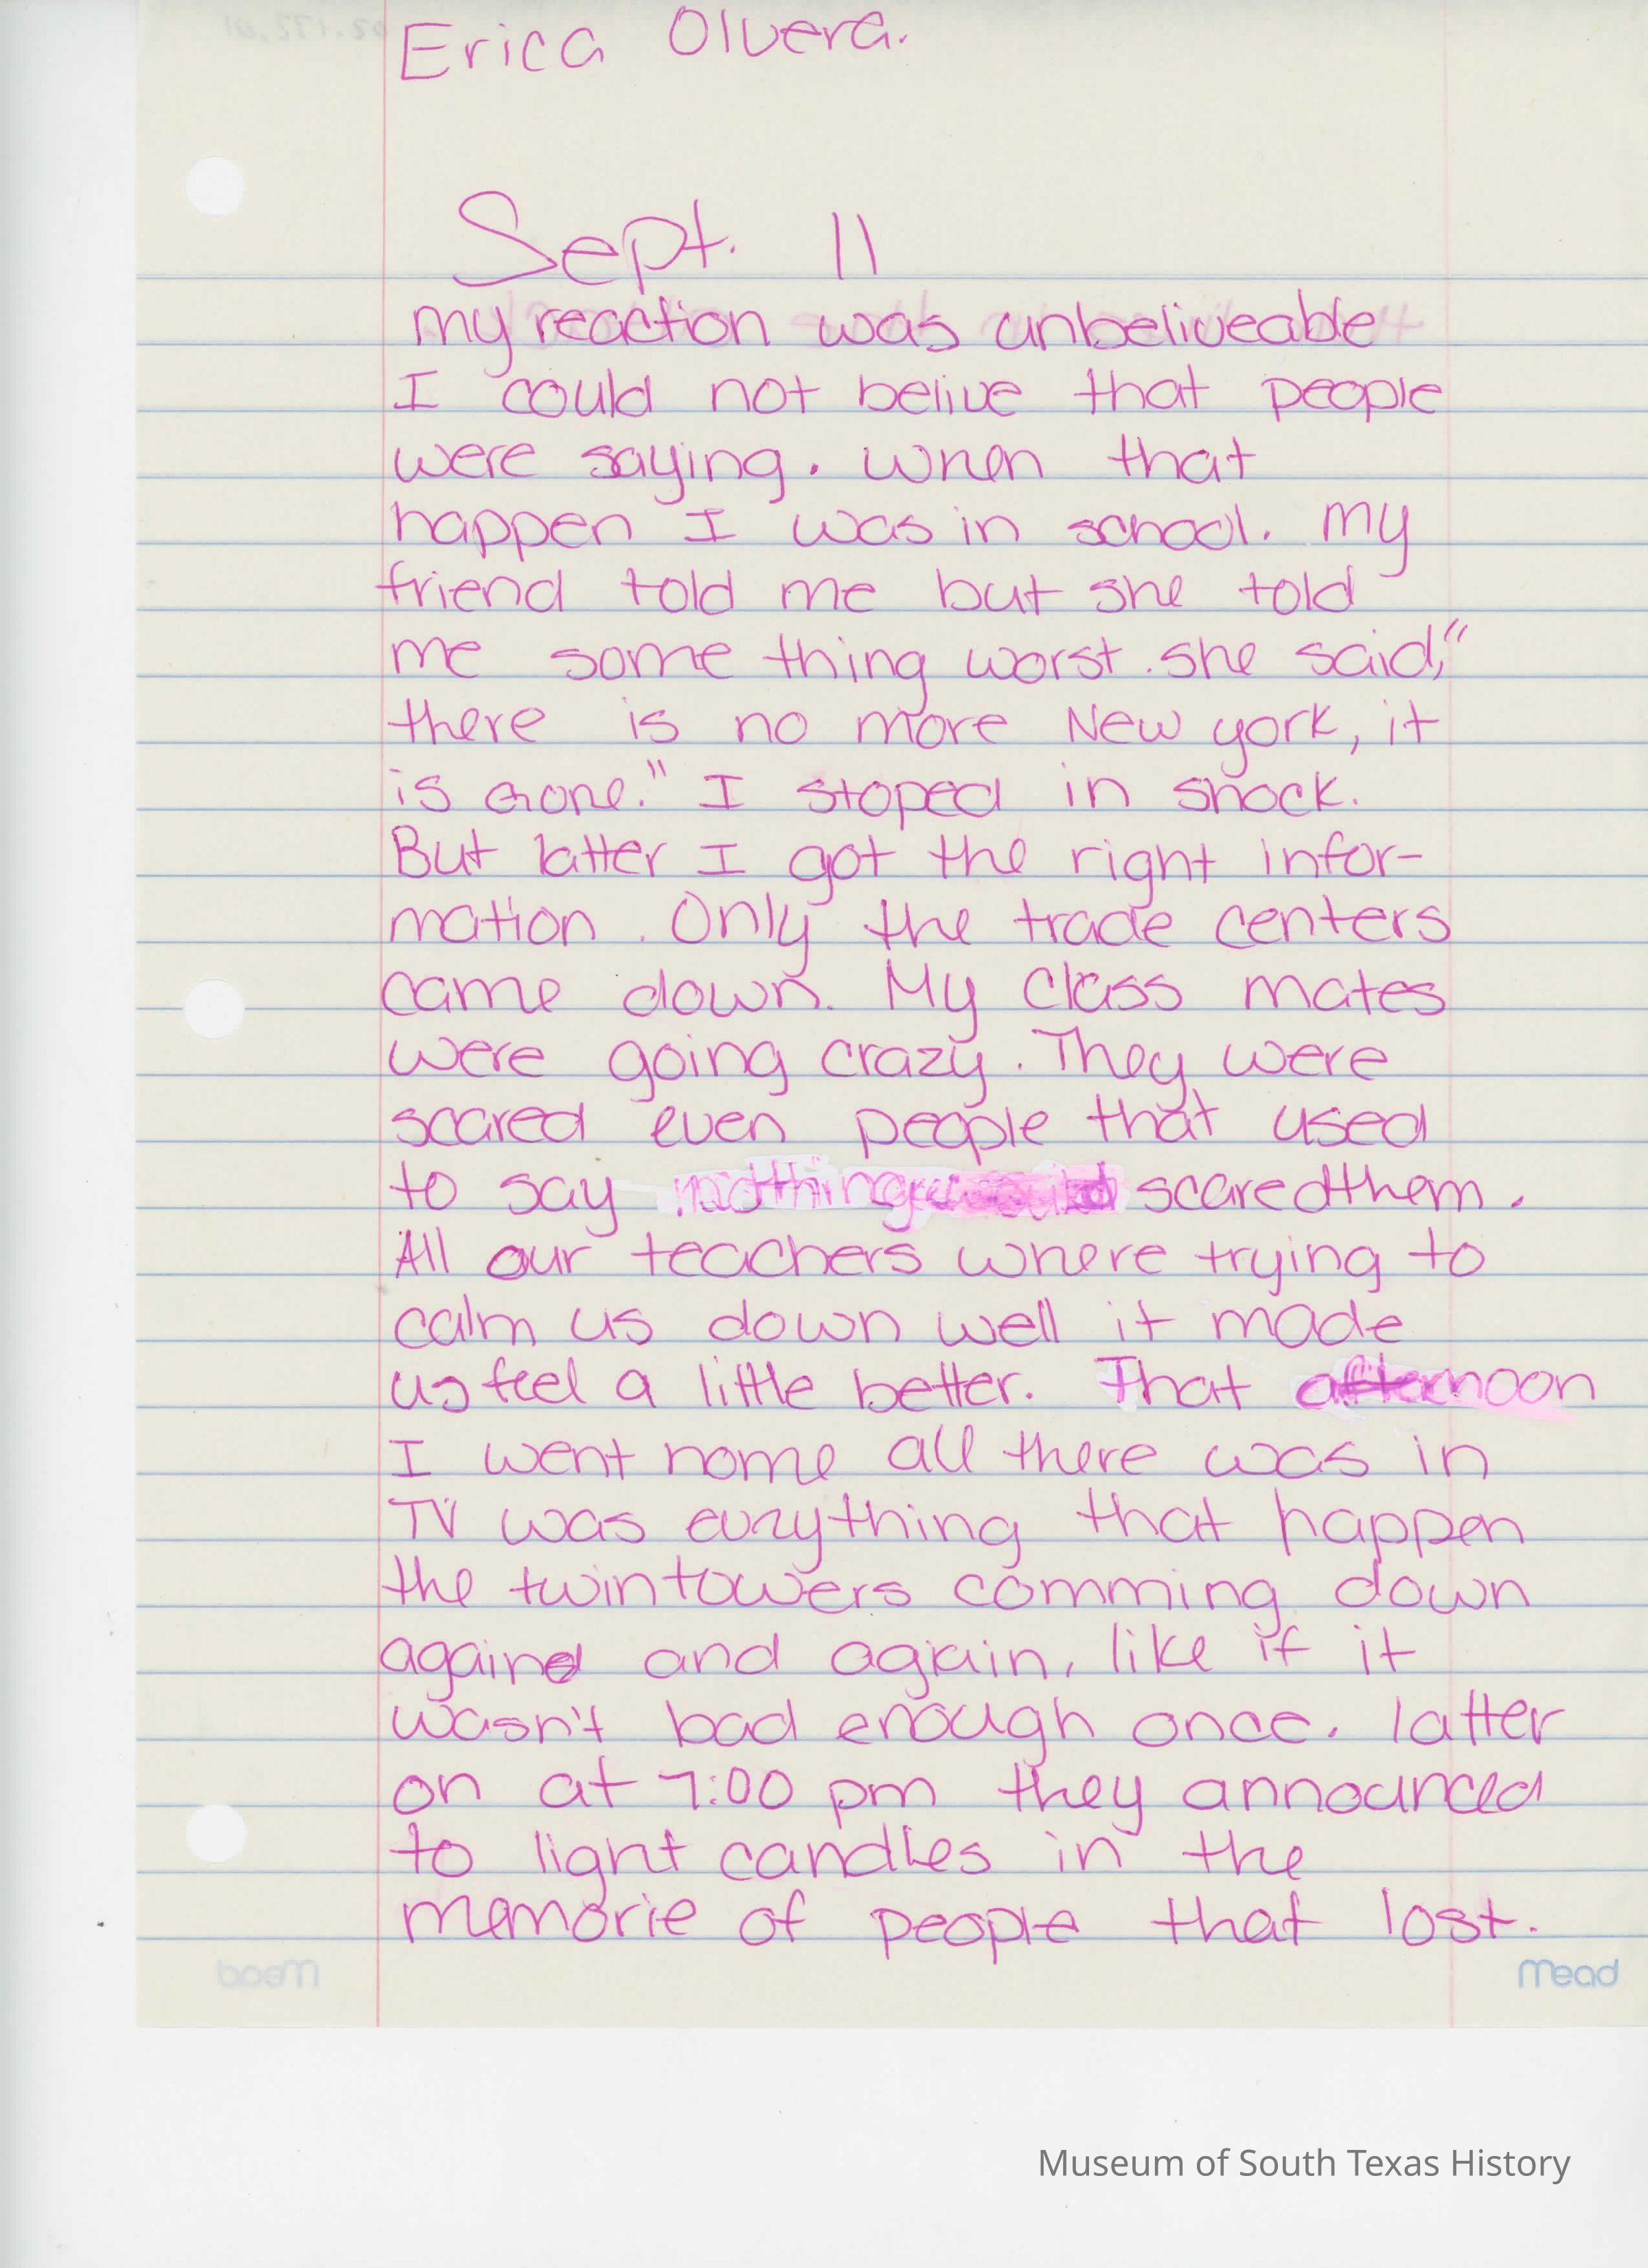 Erica Olvera.
Sept. 11
my reaction was unbeliveable
I could not belive that people
were saying. when that
happen I was in school. My
friend told me but she told
me some thing worst. she said,"
there is no more New york, it
is Gone." I stoped in shock.
But latter I got the right infor-
mation. Only the trade centers
came down. My class mates
were going crazy. They were
scared even people that used
to say nothing scared them.
All our teachers where trying to
calm us down well it made
us feel a little better. That afternoon
I went home all there was in
TV was evrything that happen
the twin towers comming down
again and again, like if it
wasn't bad enough once. latter
on at 7:00 pm they announced
to light candles in the
memorie of people that lost.
Mead
Museum of South Texas History